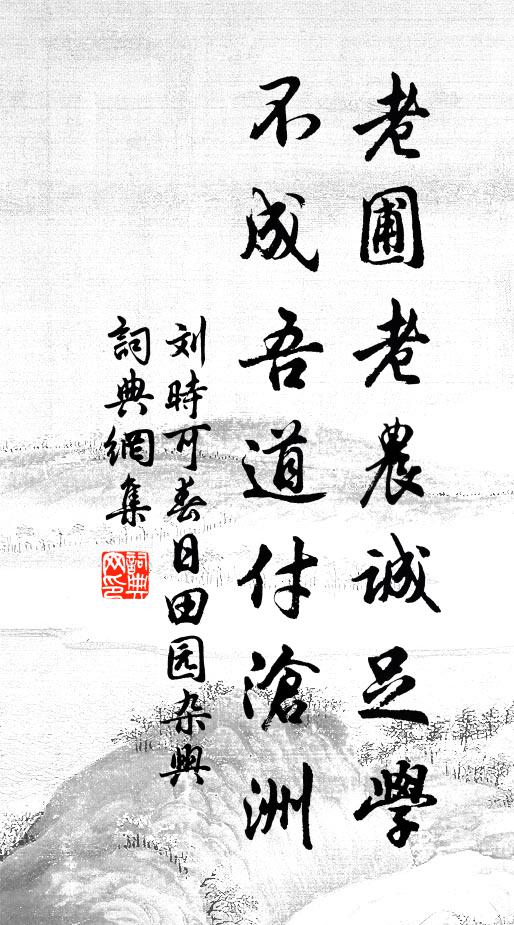 老圃老農誠足學
不成吾道付滄洲
刘時可春日田园杂興
詞典網集
詞典网印